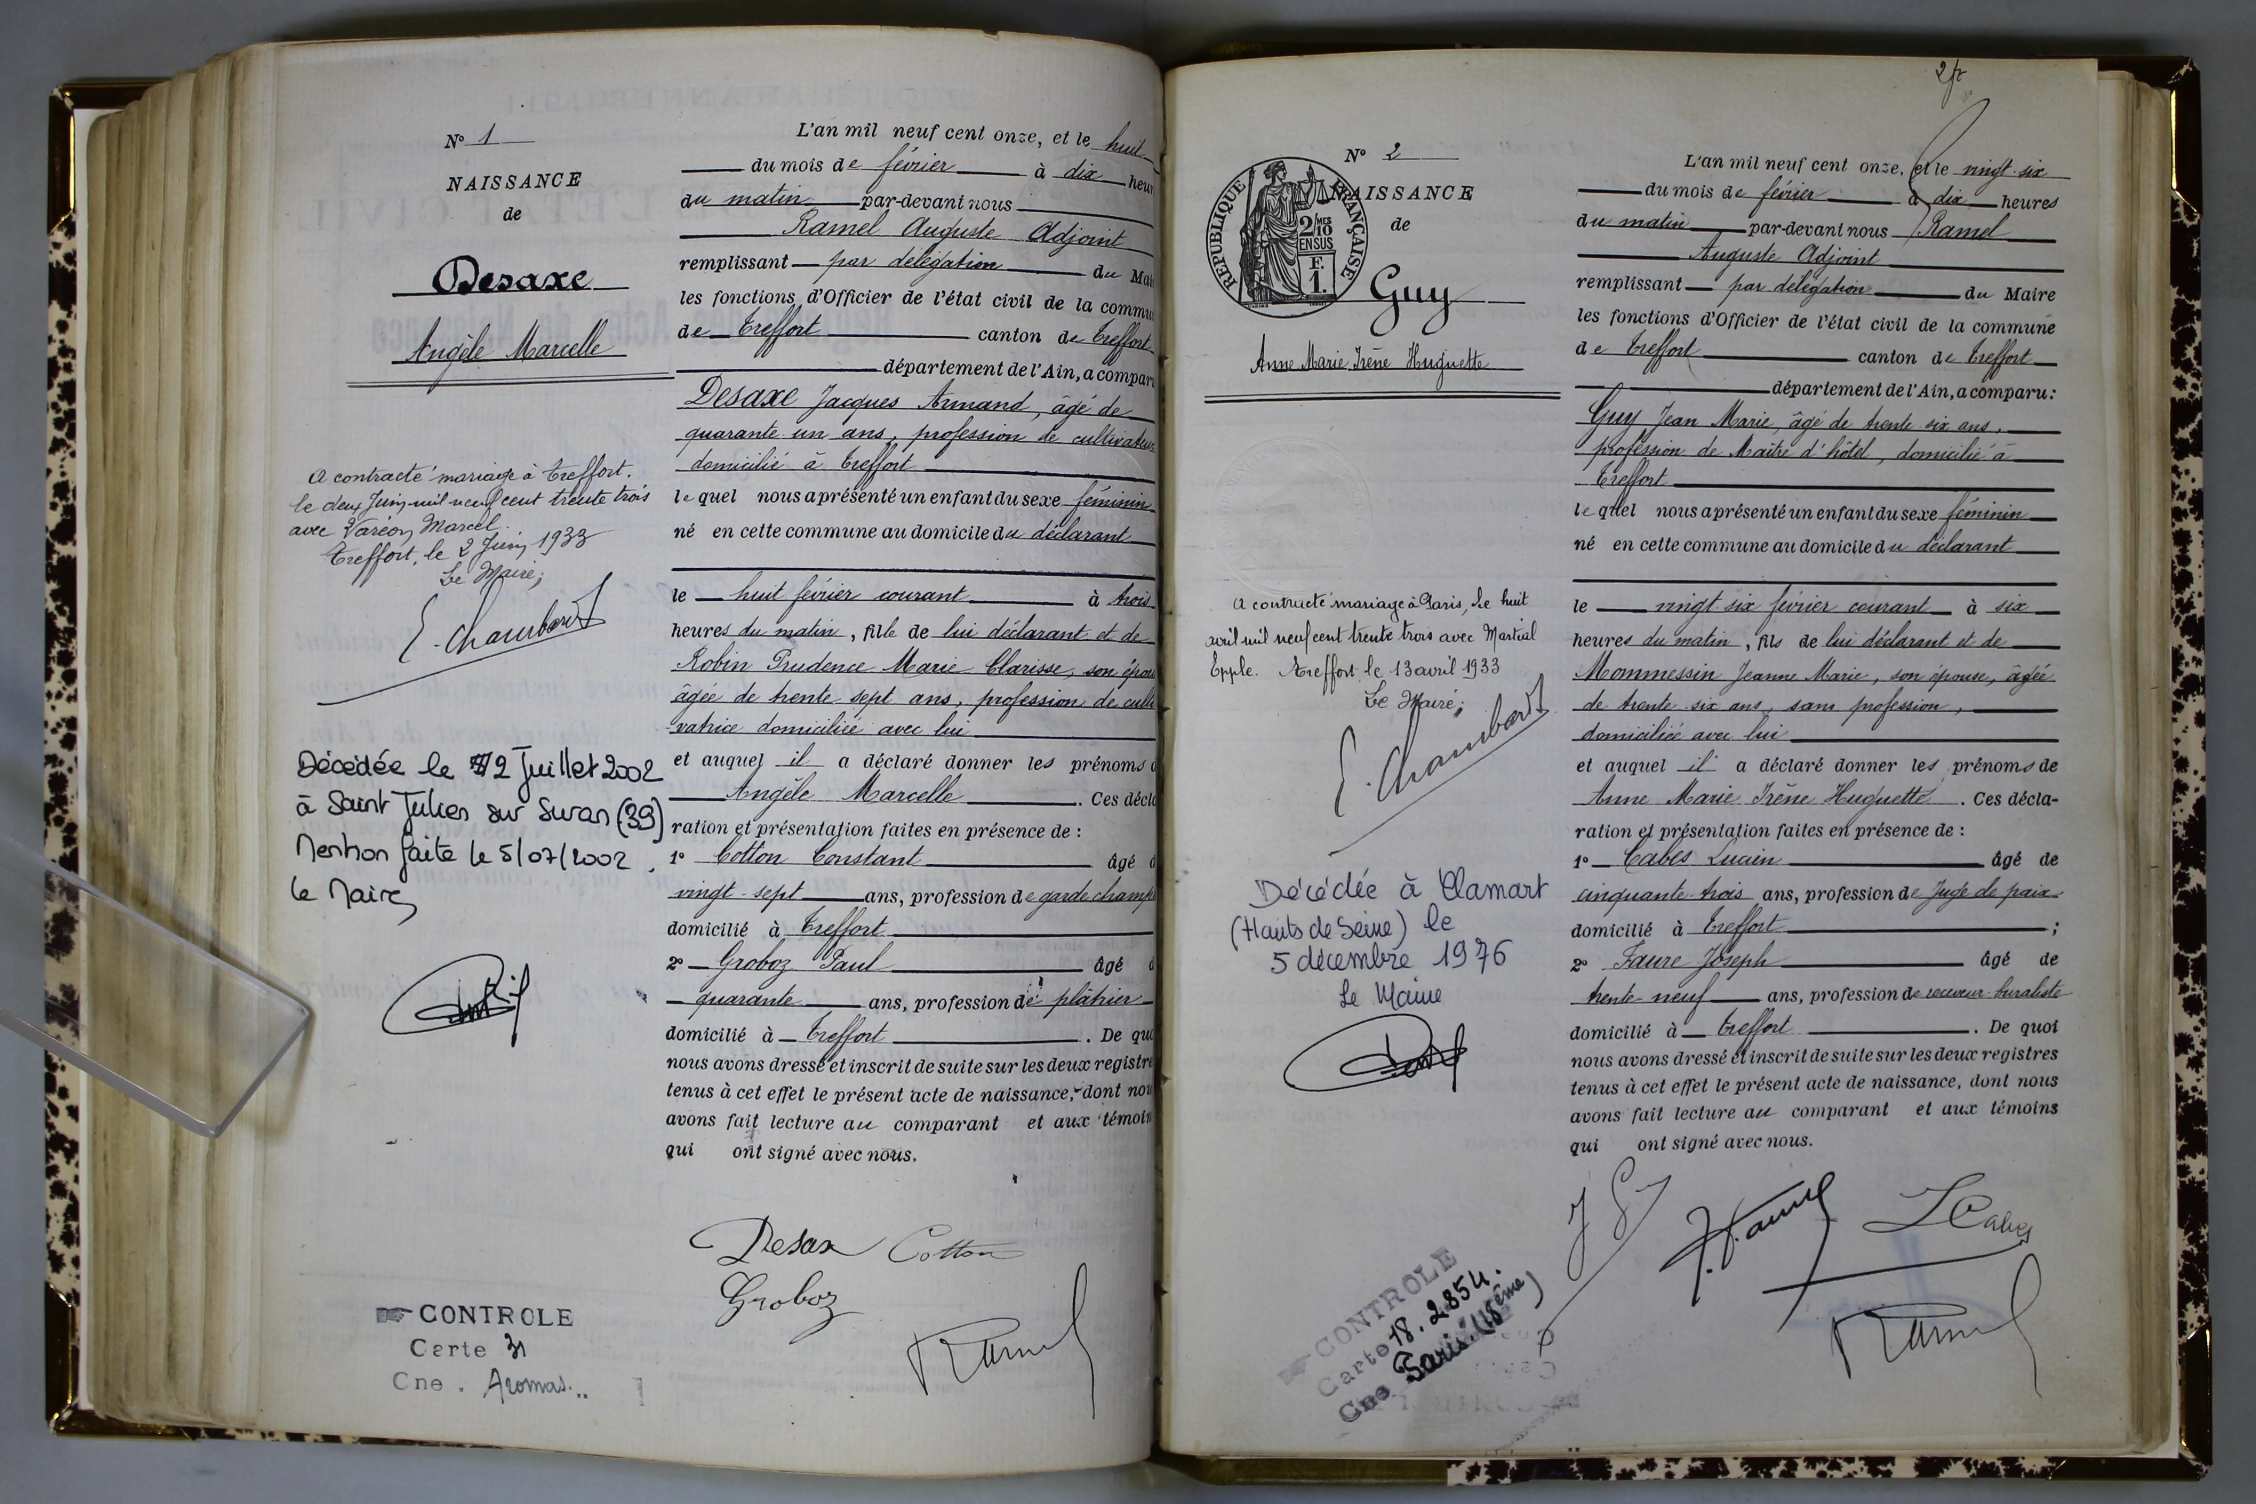 N° 1
NAISSANCE
de
Desaxe
Angèle Marcelle
A contracté mariage à Treffort.
le deux Juin mil neuf cent trente trois
avec Varéon Marcel.
Treffort, le 2 Juin 1933
Le Maire,
E. Chambard
Décédée le 2 Juillet 2002
à Saint Julien sur Suran (39)
Mention faite le 5/07/2002.
le Maire
CONTROLE
Carte 31
Cne. Aromas..
L'an mil neuf cent onze, et le huit
du mois de février à dix heur
du matin par-devant nous
Ramel Auguste Adjoint
remplissant par délégation du Mai
les fonctions d'Officier de l'état civil de la commu
de Treffort canton de Treffort
département de l'Ain, a comparu
Desaxe Jacques Armand, âgé de
quarante un ans, profession de cultivateur
domicilié à Treffort
le quel nous a présenté un enfant du sexe féminin
né en cette commune au domicile du déclarant
le huit février courant à trois
heures du matin, fille de lui déclarant et de
Robin Prudence Marie Clarisse, son épou
âgée de trente sept ans, profession de culti
vatrice domiciliée avec lui
et auquel il a déclaré donner les prénoms d
Angèle Marcelle. Ces décla
ration et présentation faites en présence de :
1° Cotton Constant âgé d
vingt-sept ans, profession de garde champ
domicilié à Treffort
2° Groboz Paul âgé d
quarante ans, profession de plâtrier
domicilié à Treffort. De quo
nous avons dressé et inscrit de suite sur les deux registre
tenus à cet effet le présent acte de naissance, dont nou
avons fait lecture au comparant et aux témoin
qui ont signé avec nous.
Desaxe Cotton
Groboz
Ramel
2
N° 2
NAISSANCE
de
REPUBLIQUE FRANÇAISE
2/10
EN SUS
F.
1.
Guy
Anne Marie Irène Huguette
A contracté mariage à Paris, le huit
avril mil neuf cent trente trois avec Martial
Epple. Treffort le 13 avril 1933
Le Maire,
E. Chambard
Décédée à Clamart
(Hauts de Seine) le
5 décembre 1976
Le Maire
CONTROLE
Carte 18.2854.
Cne Paris (18ème)
L'an mil neuf cent onze, et le vingt-six
du mois de février à dix heures
du matin par-devant nous Ramel
Auguste Adjoint
remplissant par délégation du Maire
les fonctions d'Officier de l'état civil de la commune
de Treffort canton de Treffort
département de l'Ain, a comparu :
Guy Jean Marie, âgé de trente six ans,
profession de Maître d'hôtel, domicilié à
Treffort
le quel nous a présenté un enfant du sexe féminin
né en cette commune au domicile du déclarant
le vingt six février courant à six
heures du matin, fils de lui déclarant et de
Mommessin Jeanne Marie, son épouse, âgée
de trente six ans, sans profession,
domiciliée avec lui
et auquel il a déclaré donner les prénoms de
Anne Marie Irène Huguette. Ces décla-
ration et présentation faites en présence de :
1° Cabes Lucien âgé de
cinquante trois ans, profession de Juge de paix
domicilié à Treffort ;
2° Faure Joseph âgé de
trente-neuf ans, profession de receveur buraliste
domicilié à Treffort. De quoi
nous avons dressé et inscrit de suite sur les deux registres
tenus à cet effet le présent acte de naissance, dont nous
avons fait lecture au comparant et aux témoins
qui ont signé avec nous.
J Guy J. Faure L Cabes
Ramel